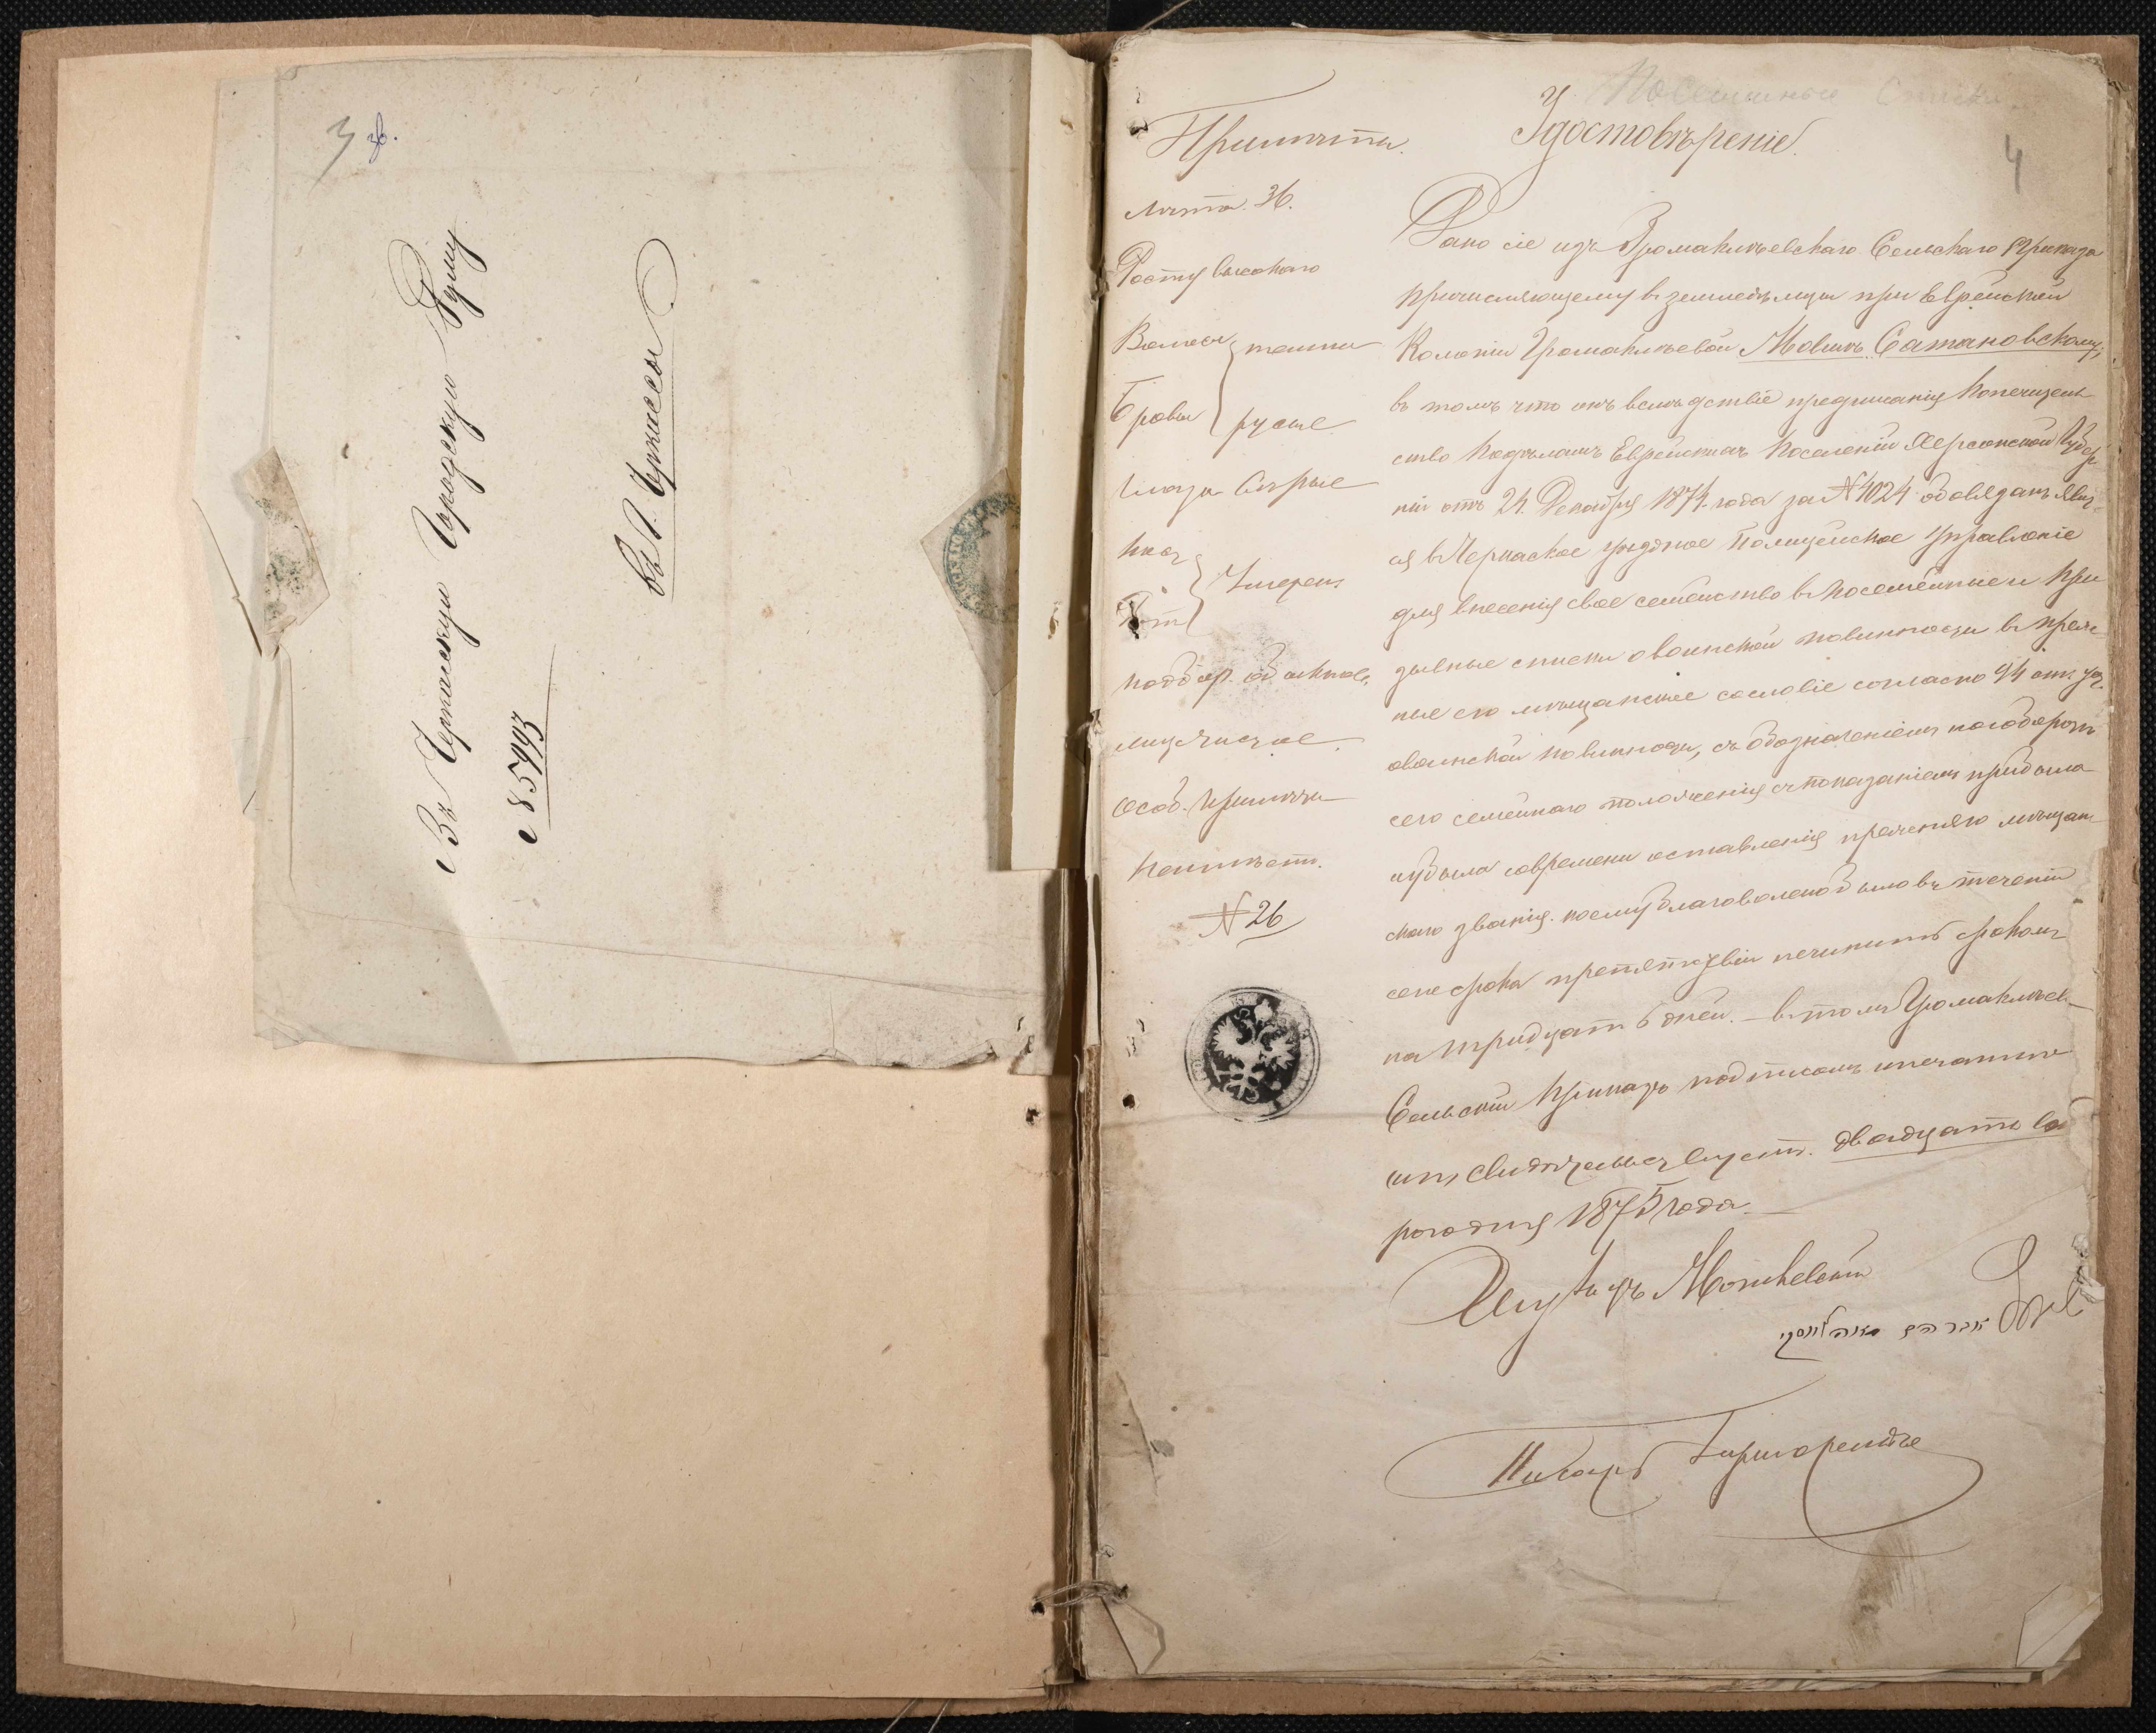 3 зв.
Въ Черкасскую Городскую Думу
№ 5493
въ г. Черкассы
Посемейные Списки
4
Примѣты.
Лѣта. 36.
Росту высокаго
Волосы темно
Брови русые
Глаза Сѣрые
Носъ
Ротъ Умерен.
подбор. обыкнов.
лицо чистое
особ. примѣты
Неимѣетъ.
№ 26
Удостовѣреніе.
Дано сіе изъ Громаклѣевскаго Сельскаго Приказа
причисляющему въ земледѣльцы при Еврейской
Колоніи Громаклѣевой Мовшѣ Сатановскому,
въ томъ что онъ вслѣдствіе предписанія Попечитель
ство Подѣламъ Еврейскихъ Поселеній Херсонской Губер
ніи отъ 24. Декабря 1874. года за № 4024 обовязанъ явит
ся въ Черкаское уѣздное Полицейское Управленіе
для внесенія свое семейство въ посемейные и при
зывные списки овоинской повинности въ преж
ніе его мѣщанские сословіе согласно 94 ст. уст.
овоинской повинности, съ обозначеніемъ
сего семейнаго положенія съ показаніемъ прибыла
иубыла современи оставленія прежняго мѣщан
скаго званія. коему благоволенобыло въ теченіи
сего срока препятствіи нечинить срокомъ
на тридцать дней. — втомъ Громаклѣев
Сельскій Приказъ подписомъ ипечатью
свидѣтельствуетъ. двадцать вто
рогодня 1875 года.
Шульцъ Мошкевскій
Писарь